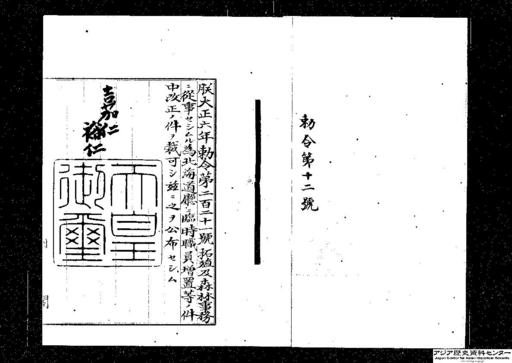 勅令第十二號
朕大正六年勅令第二百二十一號拓殖及森林事務
ニ從事セシムル爲北海道廳ニ臨時職員增置等ノ件
中改正ノ件ヲ裁可シ茲ニ之ヲ公布セシム
嘉仁
裕仁
天皇
御璽
アジア歴史資料センター
Japan Center for Asian Historical Records